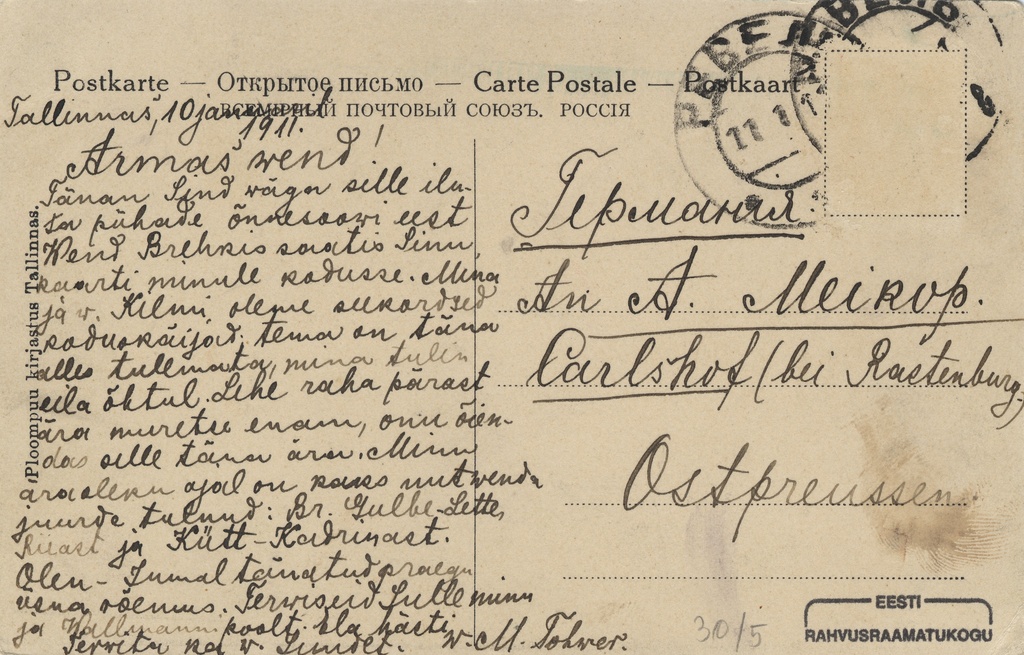 Postkarte — Открытое письмо — Carte Postale — Postkaart
ВСЕМІРНЫЙ ПОЧТОВЫЙ СОЮЗЪ. РОССІЯ
Tallinnas, 10 jan.
1911.
Armas wend!
Tänan Sind wäga selle ilu-
sa pühade õnnesoowi eest
Wend Brehkis saatis Sinu
kaarti minule kodusse. Mina
ja w. Kilmi oleme seekordsed
koduskäijad, tema on täna
alles tullemata, mina tulin
eila õhtul. Lehe raha pärast
ära muretse enam, onu õien-
das selle täna ära. Minu
äraoleku ajal on kaks uut wenda
juurde tulnud: Br. Gulbe-Lette,
Riiast ja Kütt-Kadrinast.
Olen - Jumal tänatud praegu
üsna rõemus. Terwiseid Sulle minu
ja Wallmanni poolt. Ela hästi
Terwita ka w. Sundet. w. M. Tohwer.
Ploompuu kirjastus Tallinnas.
РЕВЕЛЬ
11 1
Германия
An A. Мейкор.
Carlshof (bei Rastenburg)
Ostpreussen.
30/5
EESTI
RAHVUSRAAMATUKOGU